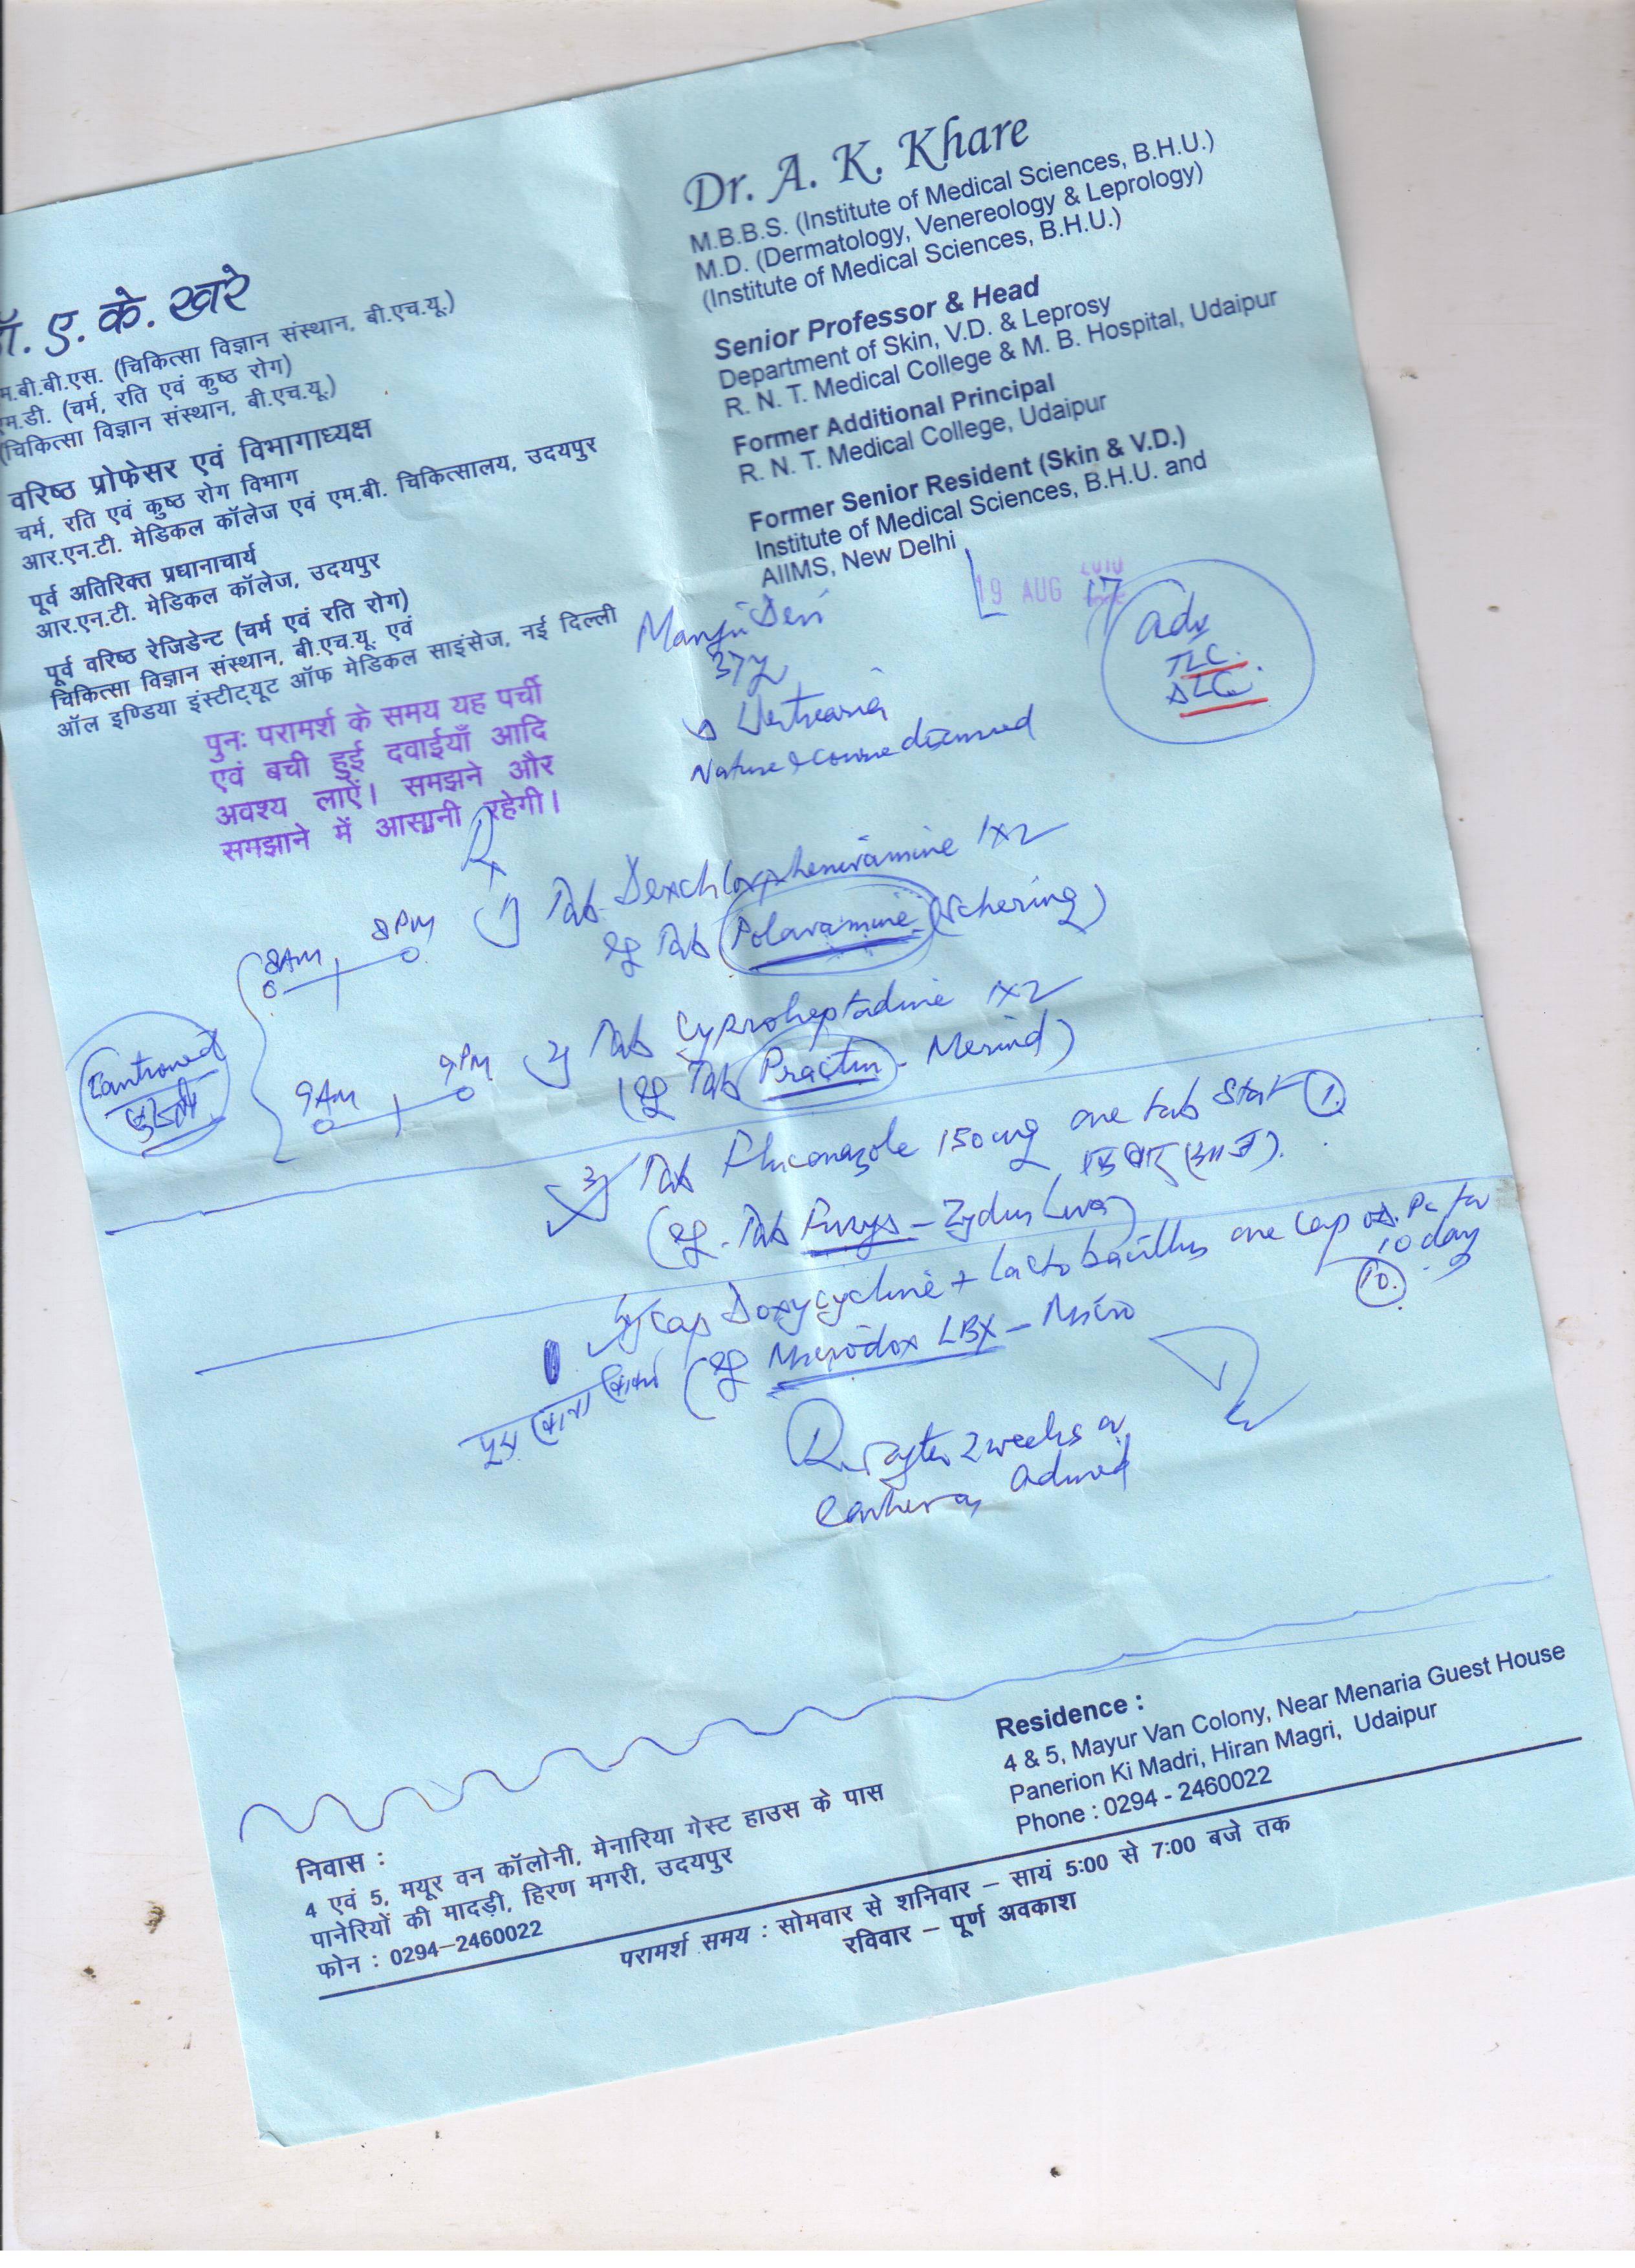 Dr. A. K. Khare
M.B.B.S. (Institute of Medical Sciences, B.H.U.)
M.D. (Dermatology, Venereology & Leprology)
(Institute of Medical Sciences, B.H.U.)
Senior Professor & Head
Department of Skin, V.D. & Leprosy
R. N. T. Medical College & M. B. Hospital, Udaipur
Former Additional Principal
R. N. T. Medical College, Udaipur
Former Senior Resident (Skin & V.D.)
Institute of Medical Sciences, B.H.U. and
AIIMS, New Delhi
ए. के. खरे
म.बी.बी.एस. (चिकित्सा विज्ञान संस्थान, बी.एच.यू.)
एम.डी. (चर्म, रति एवं कुष्ठ रोग)
(चिकित्सा विज्ञान संस्थान, बी.एच.यू.)
वरिष्ठ प्रोफेसर एवं विभागाध्यक्ष
चर्म, रति एवं कुष्ठ रोग विभाग
आर.एन.टी. मेडिकल कॉलेज एवं एम.बी. चिकित्सालय, उदयपुर
पूर्व अतिरिक्त प्रधानाचार्य
आर.एन.टी. मेडिकल कॉलेज, उदयपुर
पूर्व वरिष्ठ रेजिडेन्ट (चर्म एवं रति रोग)
चिकित्सा विज्ञान संस्थान, बी.एच.यू. एवं
ऑल इण्डिया इंस्टीट्यूट ऑफ मेडिकल साइंसेज, नई दिल्ली
पुनः परामर्श के समय यह पर्ची
एवं बची हुई दवाईयाँ आदि
अवश्य लाऐं। समझने और
समझाने में आसानी रहेगी।
19 AUG 17
Manju Devi
37y
Urticaria
Nature & course discussed
Adv
TLC
DLC
Rx
1) Tab Dexchlorpheniramine 1x2
eg Tab Polaramine (Schering)
8AM 8PM
2) Tab Cyproheptadine 1x2
(eg Tab Practin - Merind)
9AM 9PM
3) Tab Fluconazole 150mg one tab stat 1.
(eg. Tab Fuzys - Zydus
4) Cap Doxycycline + Lactobacillus one cap od. Pc for
10 day
10.
(eg Microdox LBX - Micro
R after 2 weeks or
earlier as advised
Residence :
4 & 5, Mayur Van Colony, Near Menaria Guest House
Panerion Ki Madri, Hiran Magri, Udaipur
Phone : 0294 - 2460022
निवास :
4 एवं 5, मयूर वन कॉलोनी, मेनारिया गेस्ट हाउस के पास
पानेरियों की मादड़ी, हिरण मगरी, उदयपुर
फोन : 0294-2460022
परामर्श समय : सोमवार से शनिवार – सायं 5:00 से 7:00 बजे तक
रविवार – पूर्ण अवकाश